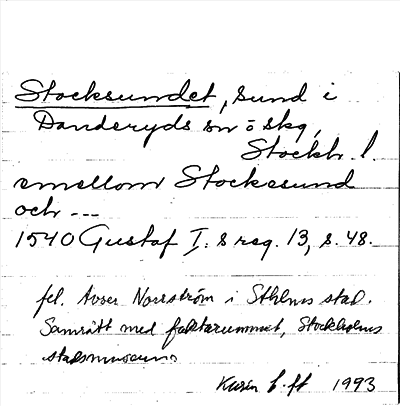 Stocksundet, sund i
Danderyds sn ö skg,
Stockh. l.
emellom Stockesund
och ---
1540 Gustaf I:s reg. 13, s. 48.
fel. Avser Norrström i Sthlms stad.
Samrått med faktarummet, Stockholms
stadsmuseum
Karin
1993